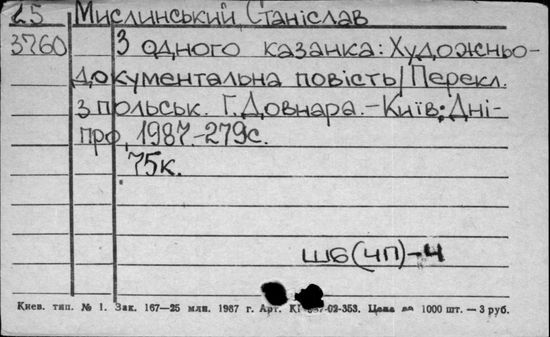 25 Мислинський, Станіслав
3760 З одного казанка: Художньо-
документальна повість / Перекл.
з польськ. Г. Довнара. - Київ: Дні-
про, 1987. - 279с.
75к.
ШБ(ЧП)-4
Киев. тип. № 1. Зак. 167—25 млн. 1987 г. Арт. 02-353. Цена за 1000 шт. — 3 руб.